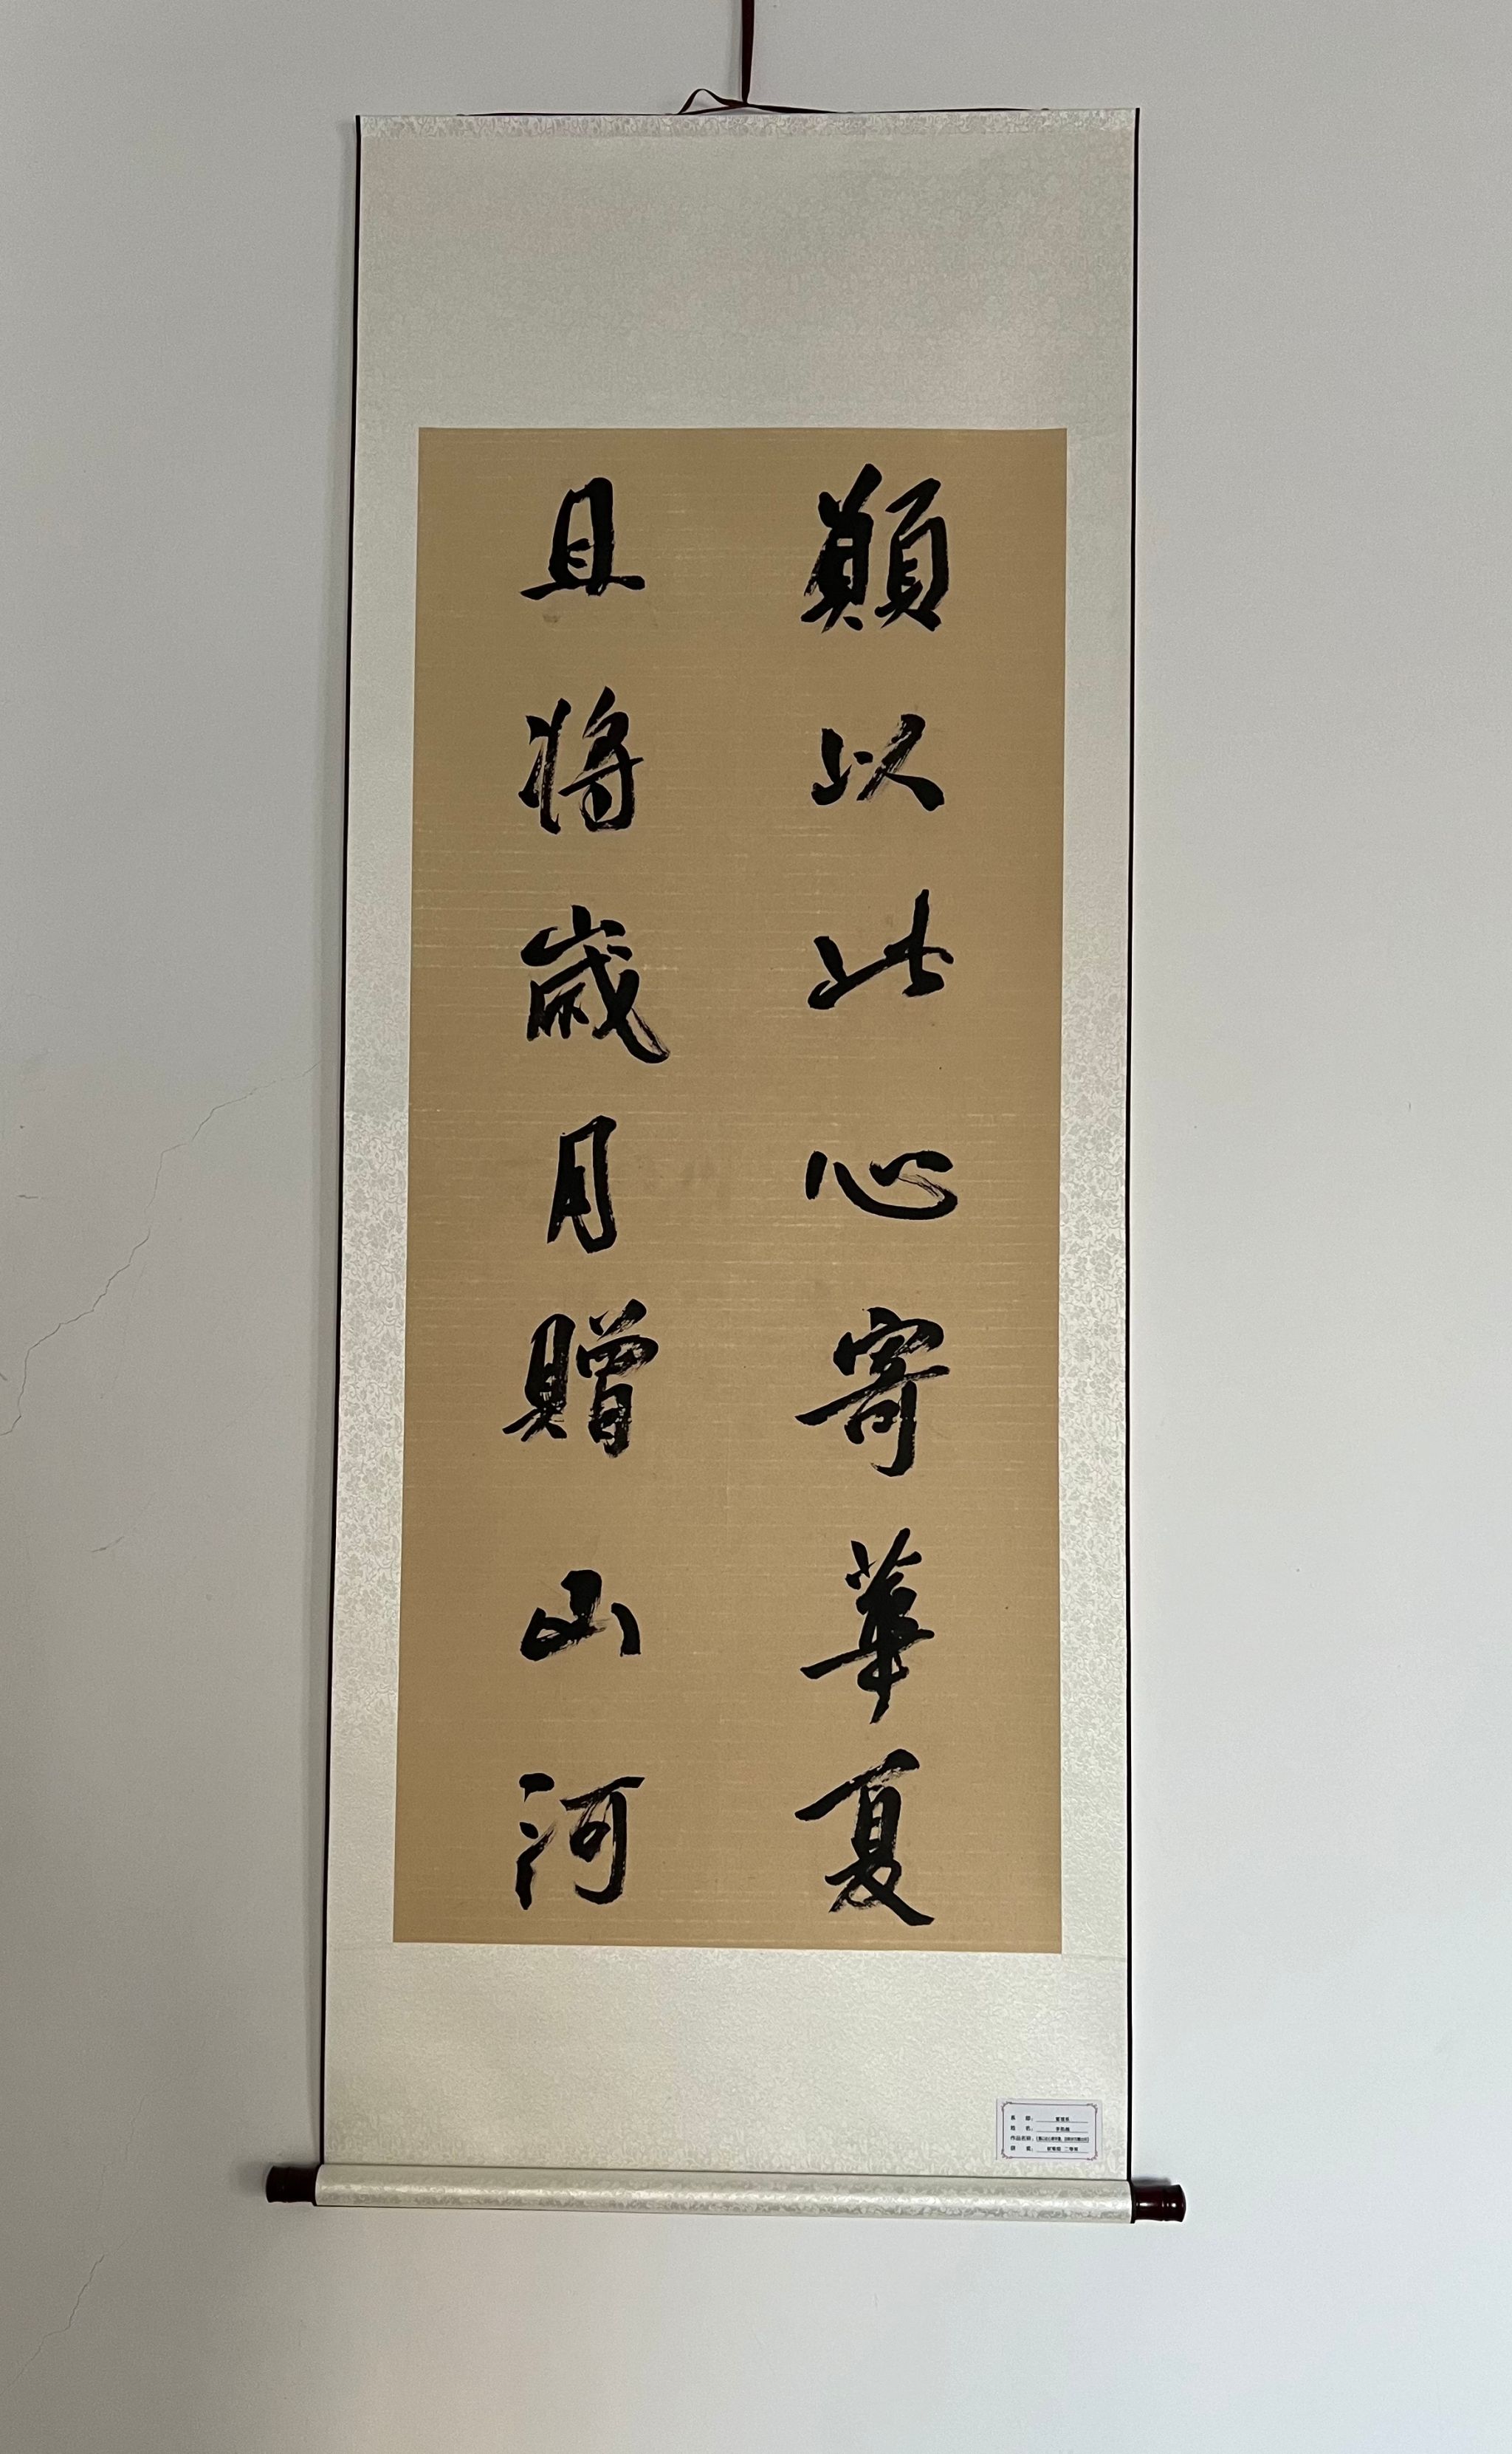 願以此心寄華夏
且将歲月贈山河
系 部：
姓 名：
作品名称：